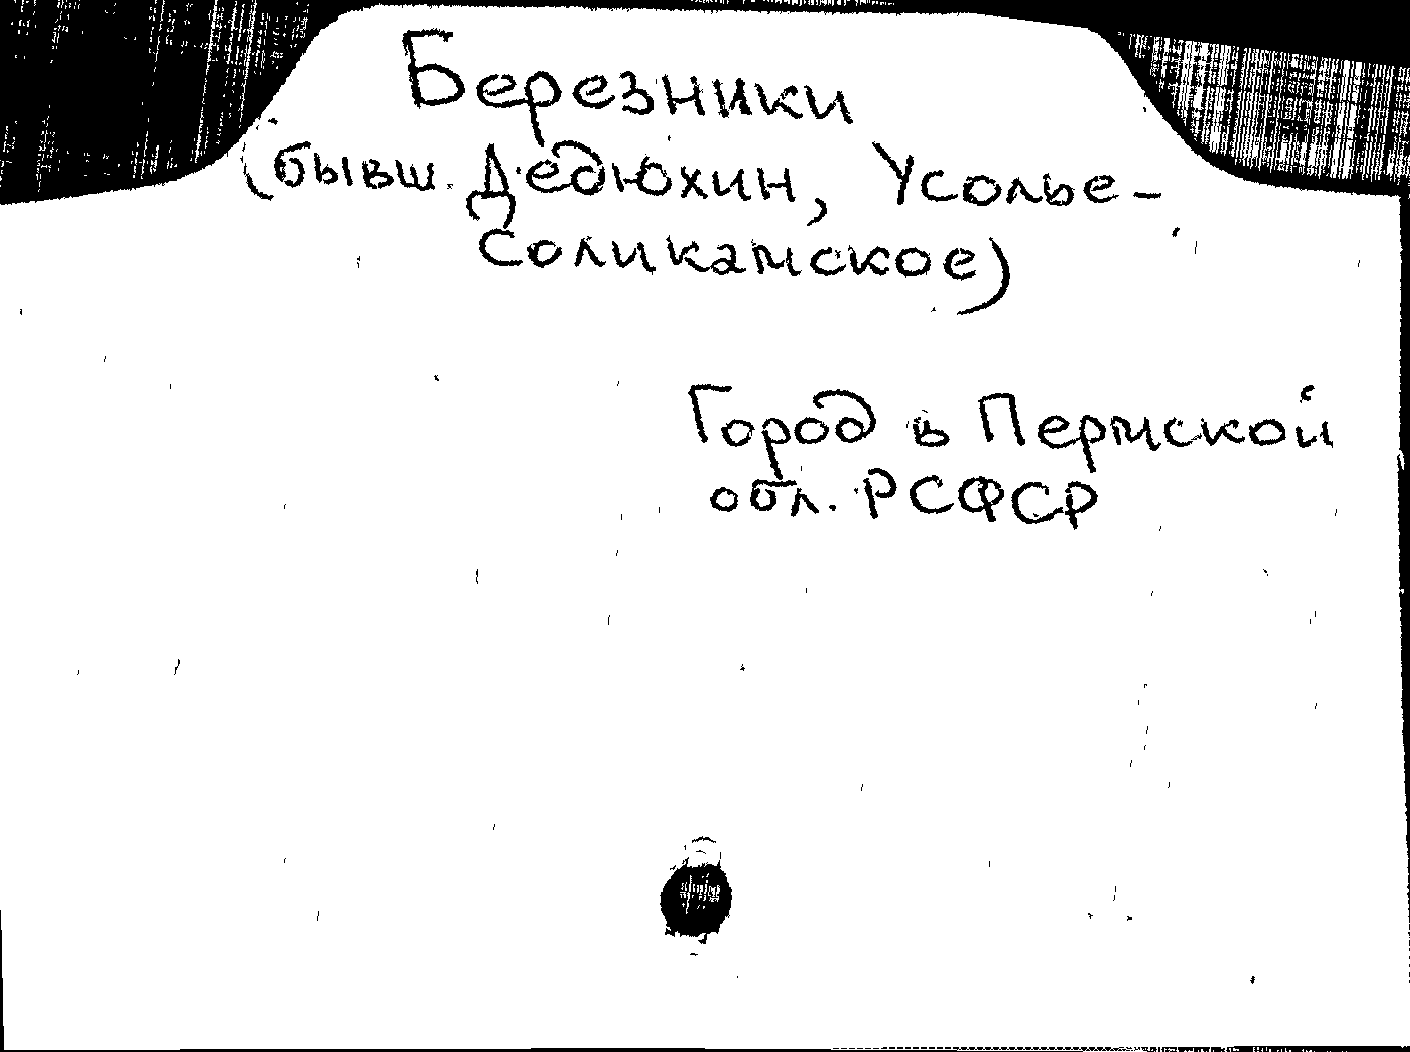 Березники
(бывш. Дедюхин, Усолье-
Соликамское)
Город в Пермской
обл. РСФСР